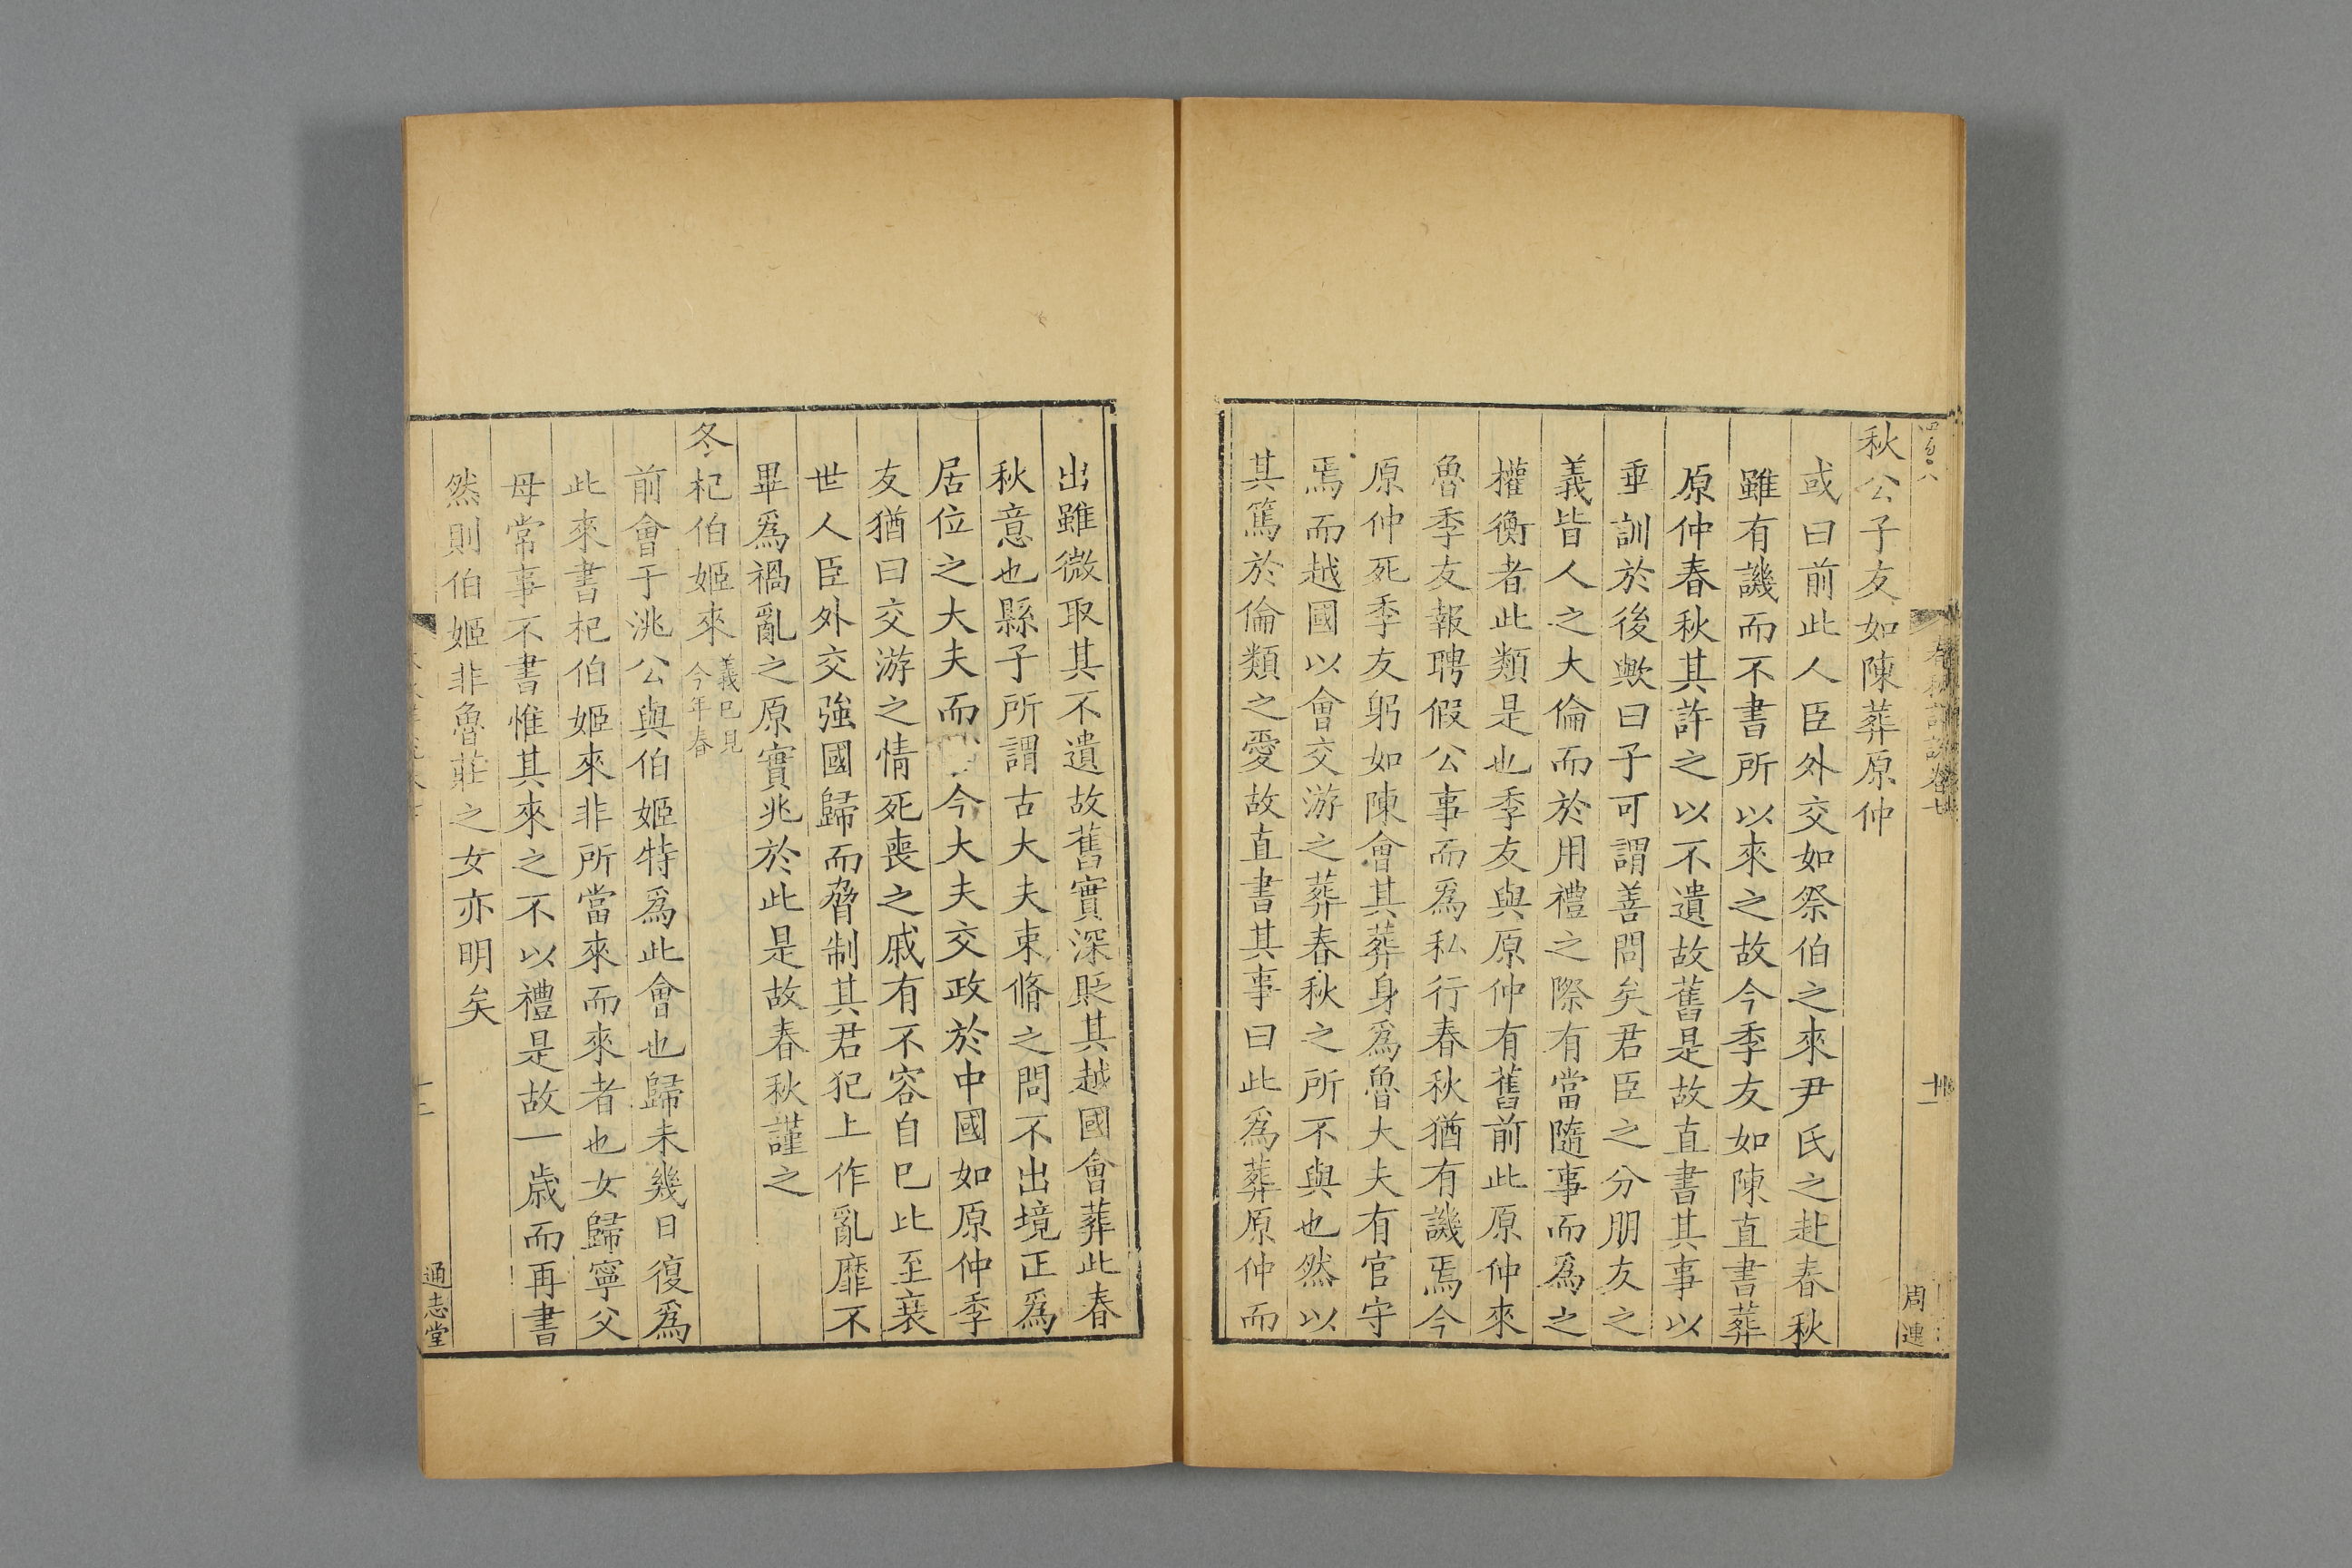 秋公子友如陳葬原仲
或曰前此人臣外交如祭伯之來尹氏之赴春秋
雖有譏而不書所以來之故今季友如陳直書葬
原仲春秋其許之以不遺故舊是故直書其事以
垂訓於後歟曰子可謂善問矣君臣之分朋友之
義皆人之大倫而於用禮之際有當隨事而爲之
權衡者此類是也季友與原仲有舊前此原仲來
魯季友報聘假公事而爲私行春秋猶有譏焉今
原仲死季友躬如陳會其葬身爲魯大夫有官守
焉而越國以會交游之葬春秋之所不與也然以
其篤於倫類之愛故直書其事曰此爲葬原仲而
周連
出雖微取其不遺故舊實深貶其越國會葬此春
秋意也縣子所謂古大夫束脩之問不出境正爲
居位之大夫而今大夫交政於中國如原仲季
友猶曰交游之情死喪之戚有不容自已比至衰
世人臣外交強國歸而脅制其君犯上作亂靡不
畢爲禍亂之原實兆於此是故春秋謹之
冬杞伯姬來
義已見
今年春
前會于洮公與伯姬特爲此會也歸未幾日復爲
此來書杞伯姬來非所當來而來者也女歸寧父
母常事不書惟其來之不以禮是故一歲而再書
然則伯姬非魯莊之女亦明矣
通志堂